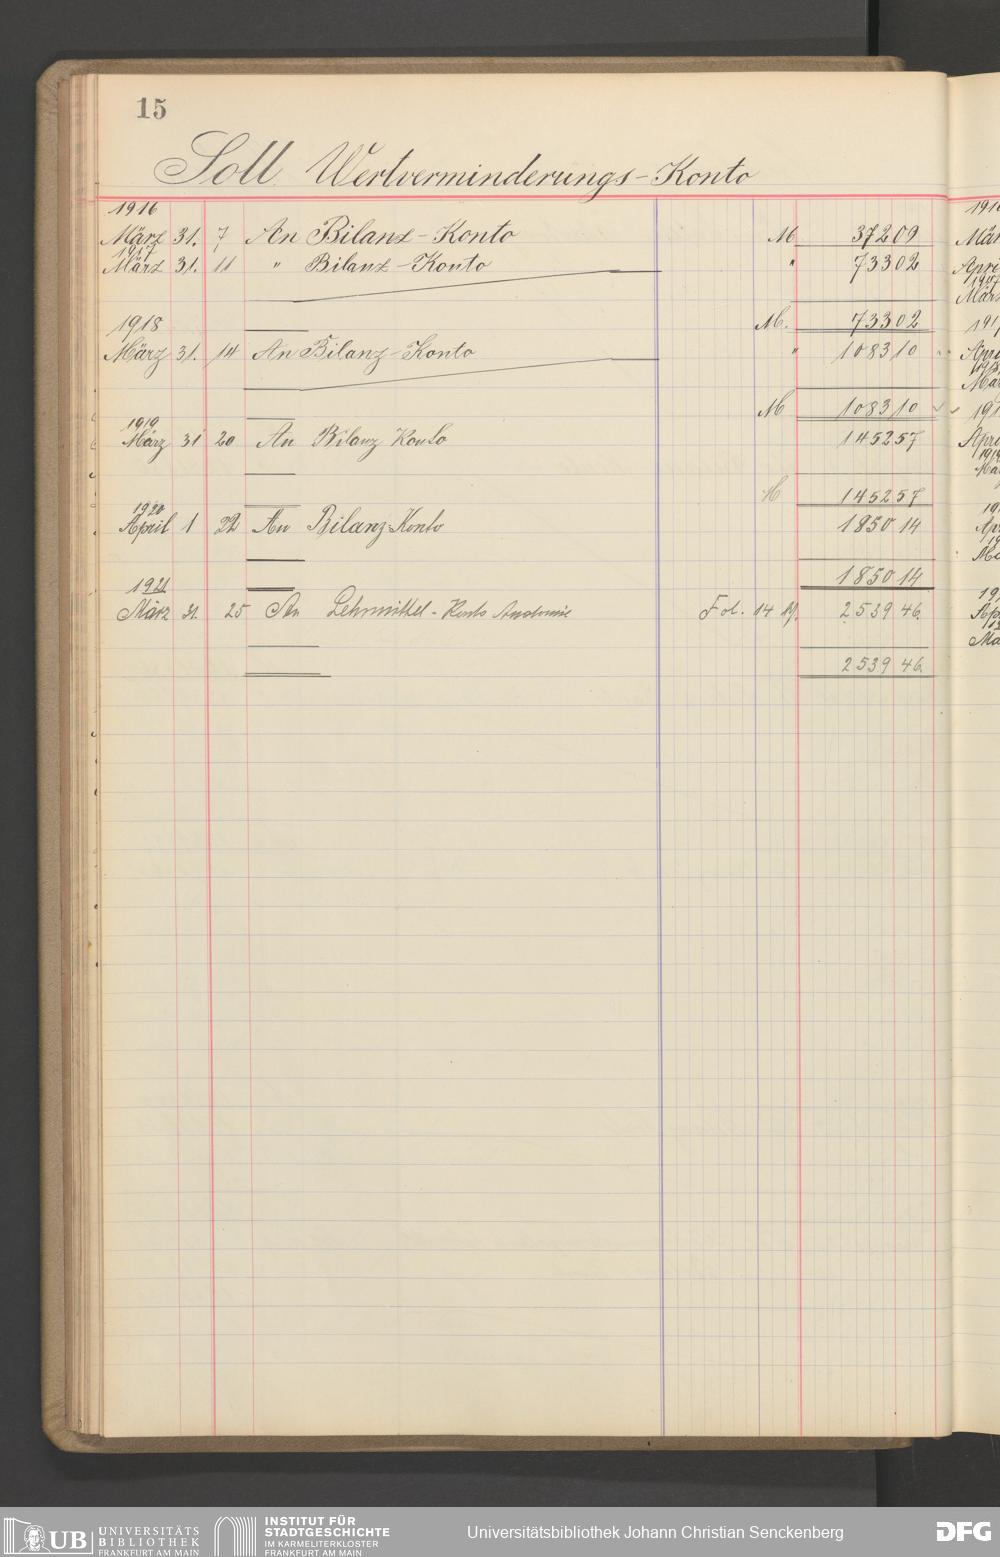 15
Soll Wertverminderungs-Konto
1916
März 31. 7 An Bilanz-Konto M 372 09
1917
März 31. 11 " Bilanz-Konto " 733 02
M. 733 02
1918
März 31. 14 An Bilanz-Konto " 1083 10
M 1083 10
1919
März 31 20 An Bilanz Konto 1452 57
M 1452 57
1920
April 1 22 An Bilanz-Konto 1850 14
1850 14
1921
März 31. 25 An Lehrmittel-Konto Anatomie Fol. 14 M. 2539 46.
2539 46.
UB UNIVERSITÄTS
BIBLIOTHEK
FRANKFURT AM MAIN
INSTITUT FÜR
STADTGESCHICHTE
IM KARMELITERKLOSTER
FRANKFURT AM MAIN
Universitätsbibliothek Johann Christian Senckenberg
DFG